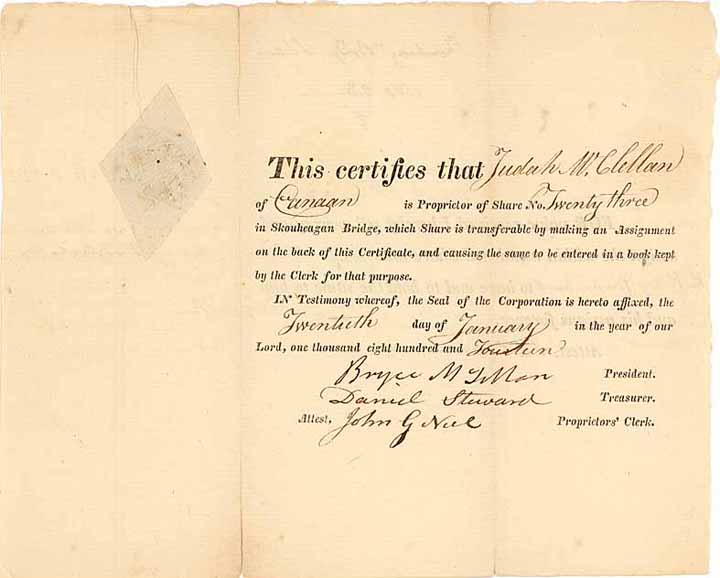 This certifies that Judah McClellan
of Canaan is Proprietor of Share No. Twenty three
in Skouheagan Bridge, which Share is transferable by making an Assignment
on the back of this Certificate, and causing the same to be entered in a book kept
by the Clerk for that purpose.
IN Testimony whereof, the Seal of the Corporation is hereto affixed, the
Twentieth day of January in the year of our
Lord, one thousand eight hundred and Fourteen
Bryce President.
Daniel Steward Treasurer.
Attest, John G Neil Proprietors' Clerk.